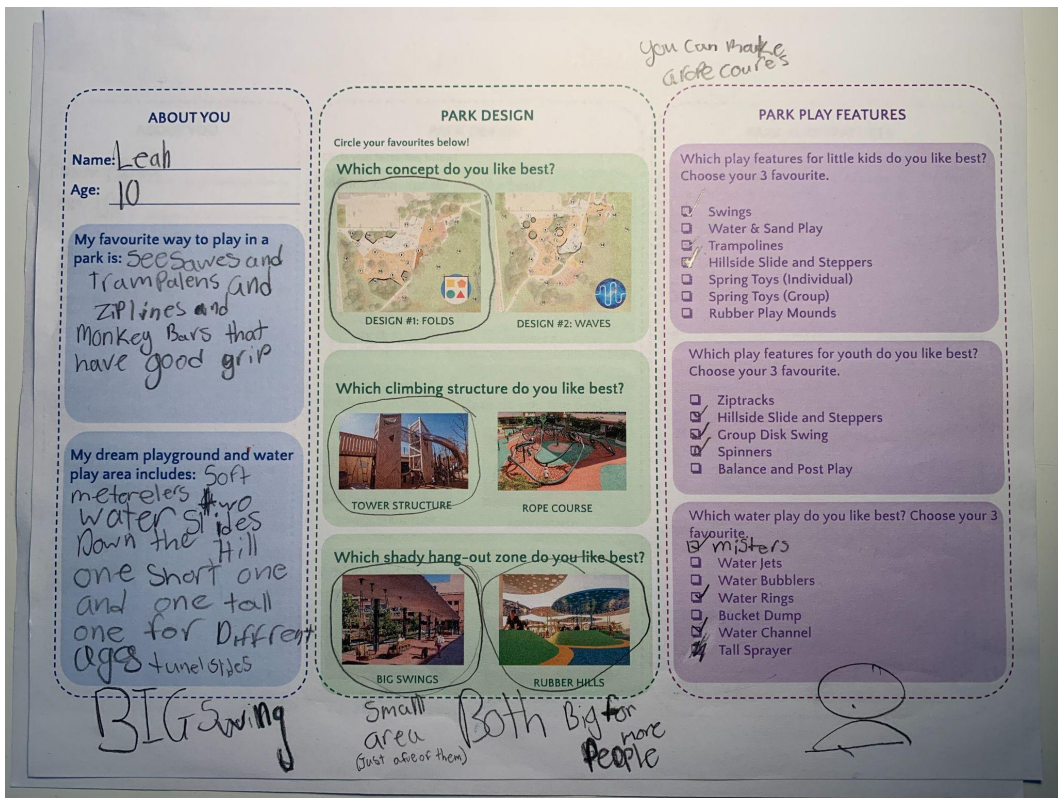 You can make
a rope coures
ABOUT YOU
Name: Leah
Age: 10
My favourite way to play in a
park is: Seesawes and
trampalens and
ziplines and
monkey Bars that
have good grip
My dream playground and water
play area includes: Soft
meterelers two
water slides
Down the Hill
one short one
and one tall
one for Diffrent
ages tunel slides
BIG Swing
PARK DESIGN
Circle your favourites below!
Which concept do you like best?
DESIGN #1: FOLDS
DESIGN #2: WAVES
Which climbing structure do you like best?
TOWER STRUCTURE
ROPE COURSE
Which shady hang-out zone do you like best?
BIG SWINGS
RUBBER HILLS
Small
area
(Just a fue of them)
Both
Big for
more
People
PARK PLAY FEATURES
Which play features for little kids do you like best?
Choose your 3 favourite.
Swings
Water & Sand Play
Trampolines
Hillside Slide and Steppers
Spring Toys (Individual)
Spring Toys (Group)
Rubber Play Mounds
Which play features for youth do you like best?
Choose your 3 favourite.
Ziptracks
Hillside Slide and Steppers
Group Disk Swing
Spinners
Balance and Post Play
Which water play do you like best? Choose your 3
favourite.
misters
Water Jets
Water Bubblers
Water Rings
Bucket Dump
Water Channel
Tall Sprayer